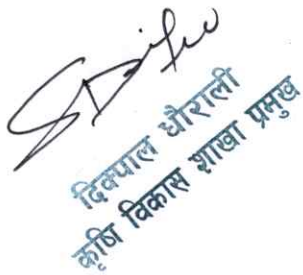 दिक्पाल धौराली
कृषि विकास शाखा प्रमुख